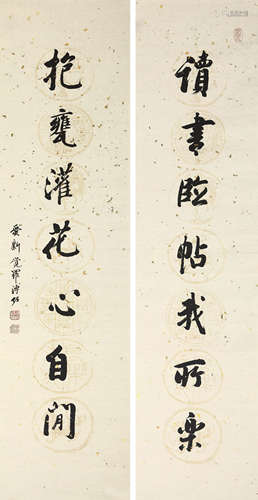 讀書臨帖我所樂
抱甕灌花心自閒
愛新覺羅溥佐